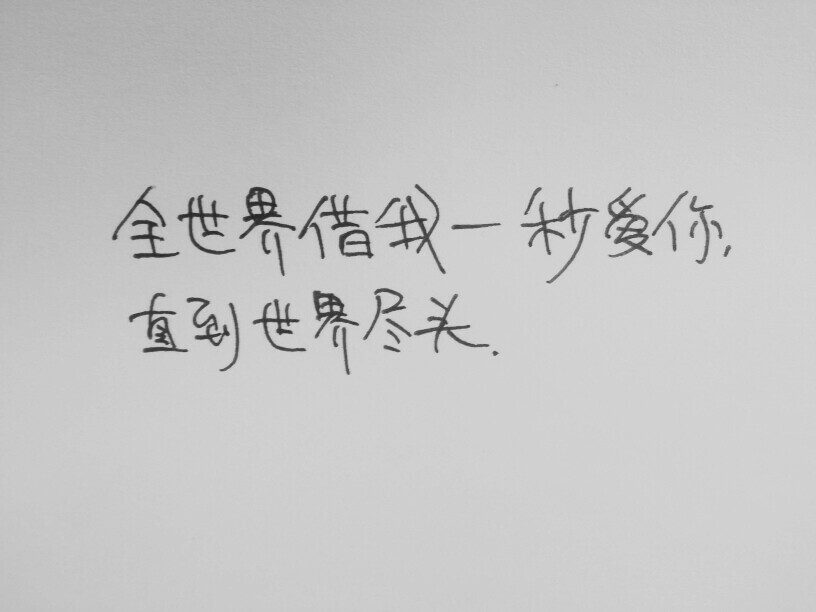 全世界借我一秒爱你,
直到世界尽头.